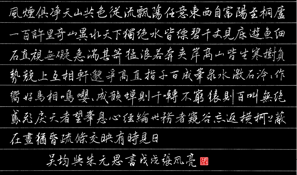 風煙俱淨天山共色從流飄蕩任意東西自富陽至桐廬
一百許里奇山異水天下獨絕水皆縹碧千丈見底遊魚細
石直視無礙急湍甚箭猛浪若奔夾岸高山皆生寒樹負
勢競上互相軒邈爭高直指千百成峯泉水激石泠泠作
響好鳥相鳴嚶嚶成韻蟬則千轉不窮猿則百叫無絕
鳶飛戾天者望峯息心經綸世務者窺谷忘返橫柯上蔽
在晝猶昏疏條交映有時見日
吳均與朱元思書戊戌張